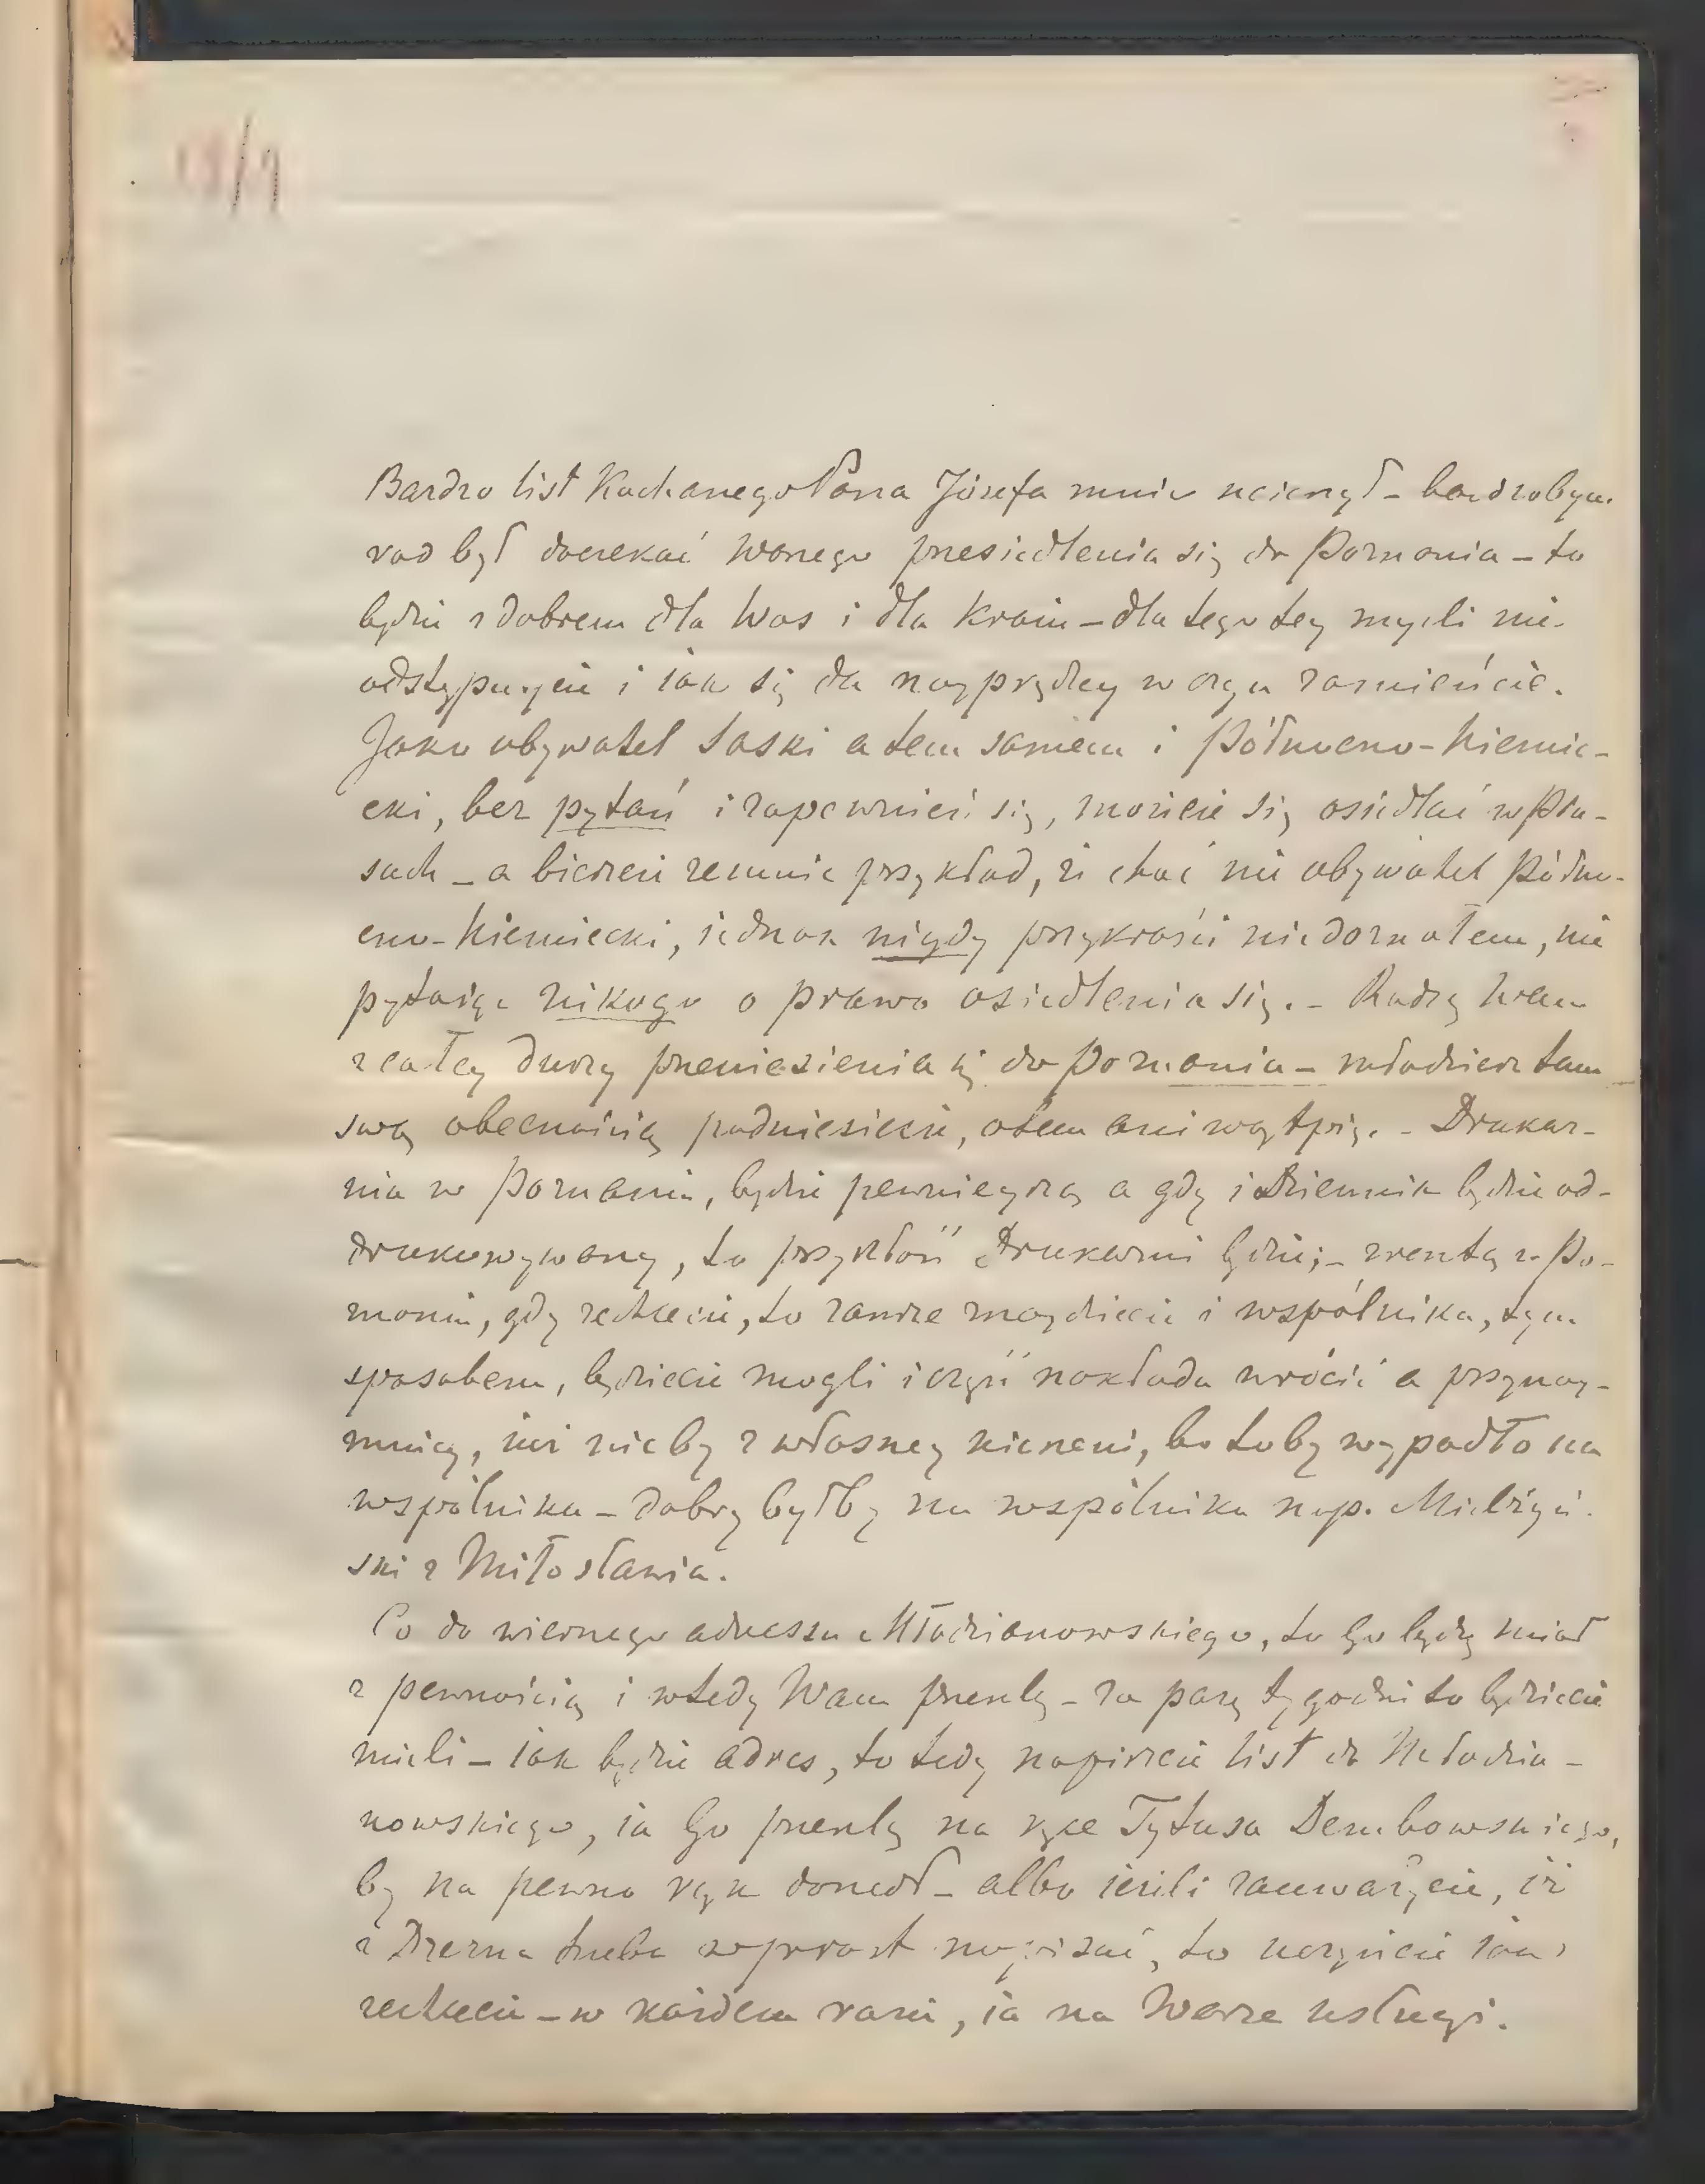 Bardzo list Kochanego Pana Józefa mnie ucieszył – bardzobym
rad był doczekać Waszego przesiedlenia się do Poznania – to
będzie z dobrem dla Was i dla Kraiu – dla tego tey myśli nie
odstępuycie i iak się da nayprędzey w czyn zamieńcie.
Jako obywatel Saski a tem samem i Północno-Niemie-
cki, bez pytań i zapewnień się, możecie się osiedlać w Pru-
sach – a bierzcie zemnie przykład, iż choć nie obywatel Półno-
cno-Niemiecki, iednak nigdy przykrości niedoznałem, nie
pytaiąc nikogo o prawo osiedlenia się. – Radzę Wam
z całey duszy przeniesienia się do Poznania – młodzież tam
swą obecnością podniesiecie, otem ani wątpię. – Drukar-
nia w Poznaniu, będzie pewnieyszą a gdy i Dziennik będzie od-
drukowywany, to przy Drukarni będzie; – zresztą w Po-
znaniu, gdy zechcecie, to zawsze znaydziecie i wspólnika, tym
sposobem, będziecie mogli i część nakładu wrócić a przynay-
mniey, iuż nieby z własney kieszeni, bo toby wypadło na
wspólnika – dobry byłby na wspólnika np. Mielżyń-
ski z Miłosławia.
Co do wiernego adressu Młodzianowskiego, to go będę miał
z pewnością i wtedy Wam prześlę – za parę tygodni to będziecie
mieli – iak będzie adres, to tedy napiszcie list do Młodzia-
nowskiego, ia go prześlę na ręce Tytusa Dembowskiego,
by na pewno rąk doszedł – albo ieżeli zauważycie, iż
z Drezna trzeba wprost napisać, to uczyńcie iak
zechcecie – w każdem razie, ia na Wasze usługi.